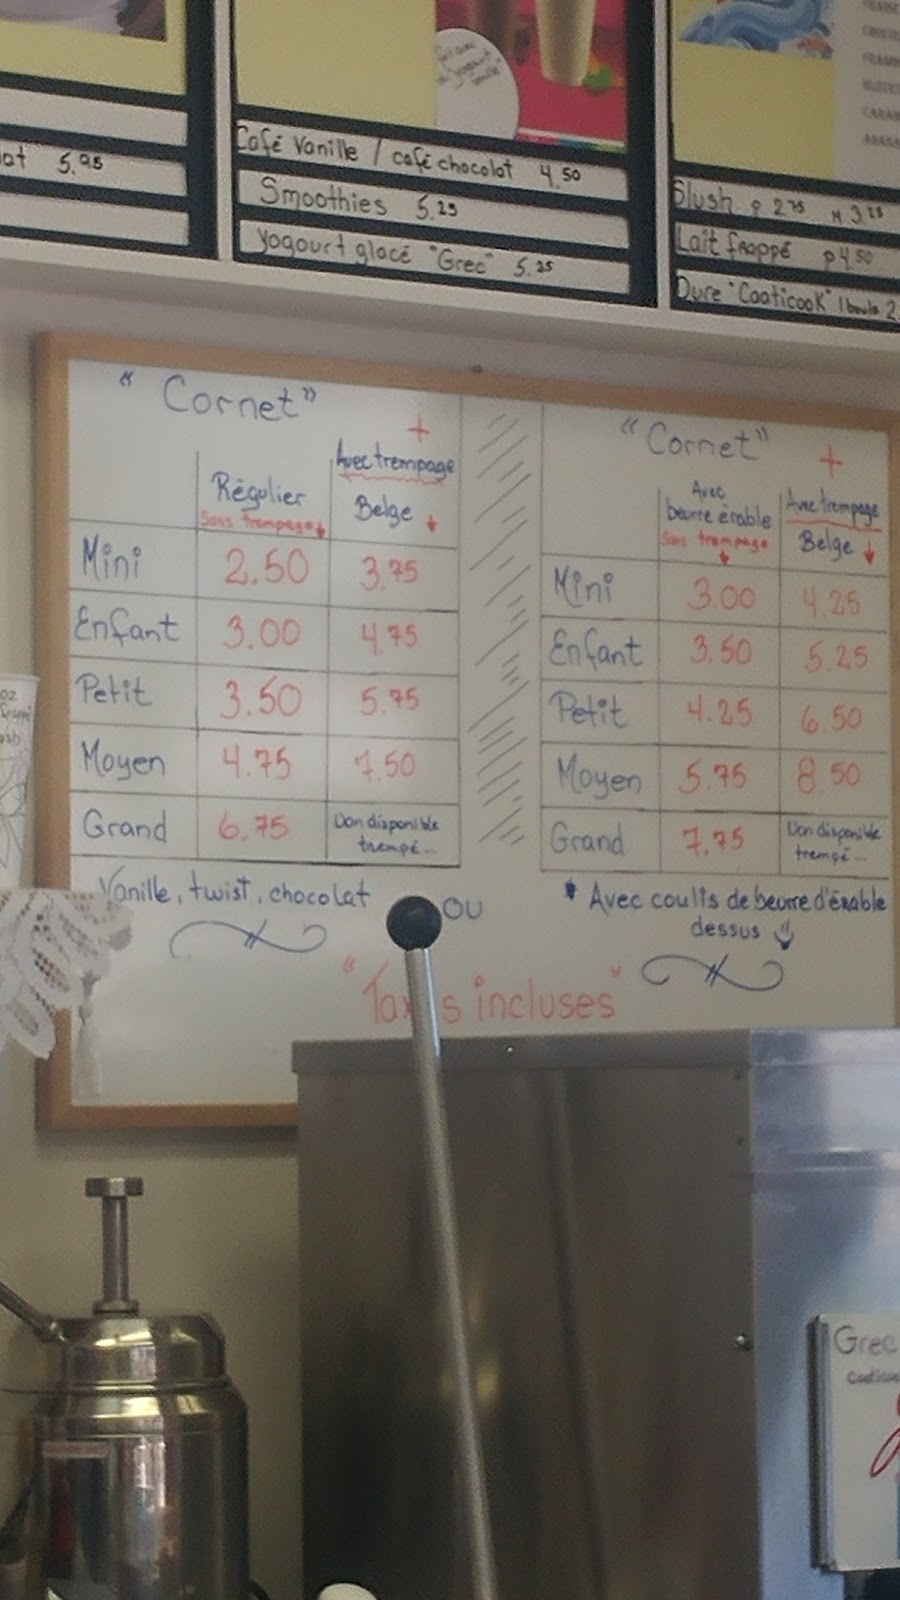 5.95
Café Vanille / café chocolat 4.50
Smoothies 5.25
Yogourt glacé "Grec" 5.25
Slush P 2.75 M 3.25
Lait frappé P 4.50
Dure "Coaticook" 1 boule
"Cornet"
+
Régulier
Sans trempage
Avec trempage
Belge
Mini 2.50 3.75
Enfant 3.00 4.75
Petit 3.50 5.75
Moyen 4.75 7.50
Grand 6.75 Non disponible
trempé...
Vanille, twist, chocolat
OU
"Cornet"
+
Avec
beurre érable
Sans trempage
Avec trempage
Belge
Mini 3.00 4.25
Enfant 3.50 5.25
Petit 4.25 6.50
Moyen 5.75 8.50
Grand 7.75 Non disponible
trempé...
* Avec coulis de beurre d'érable
dessus
"Taxes incluses"
oz
Grec